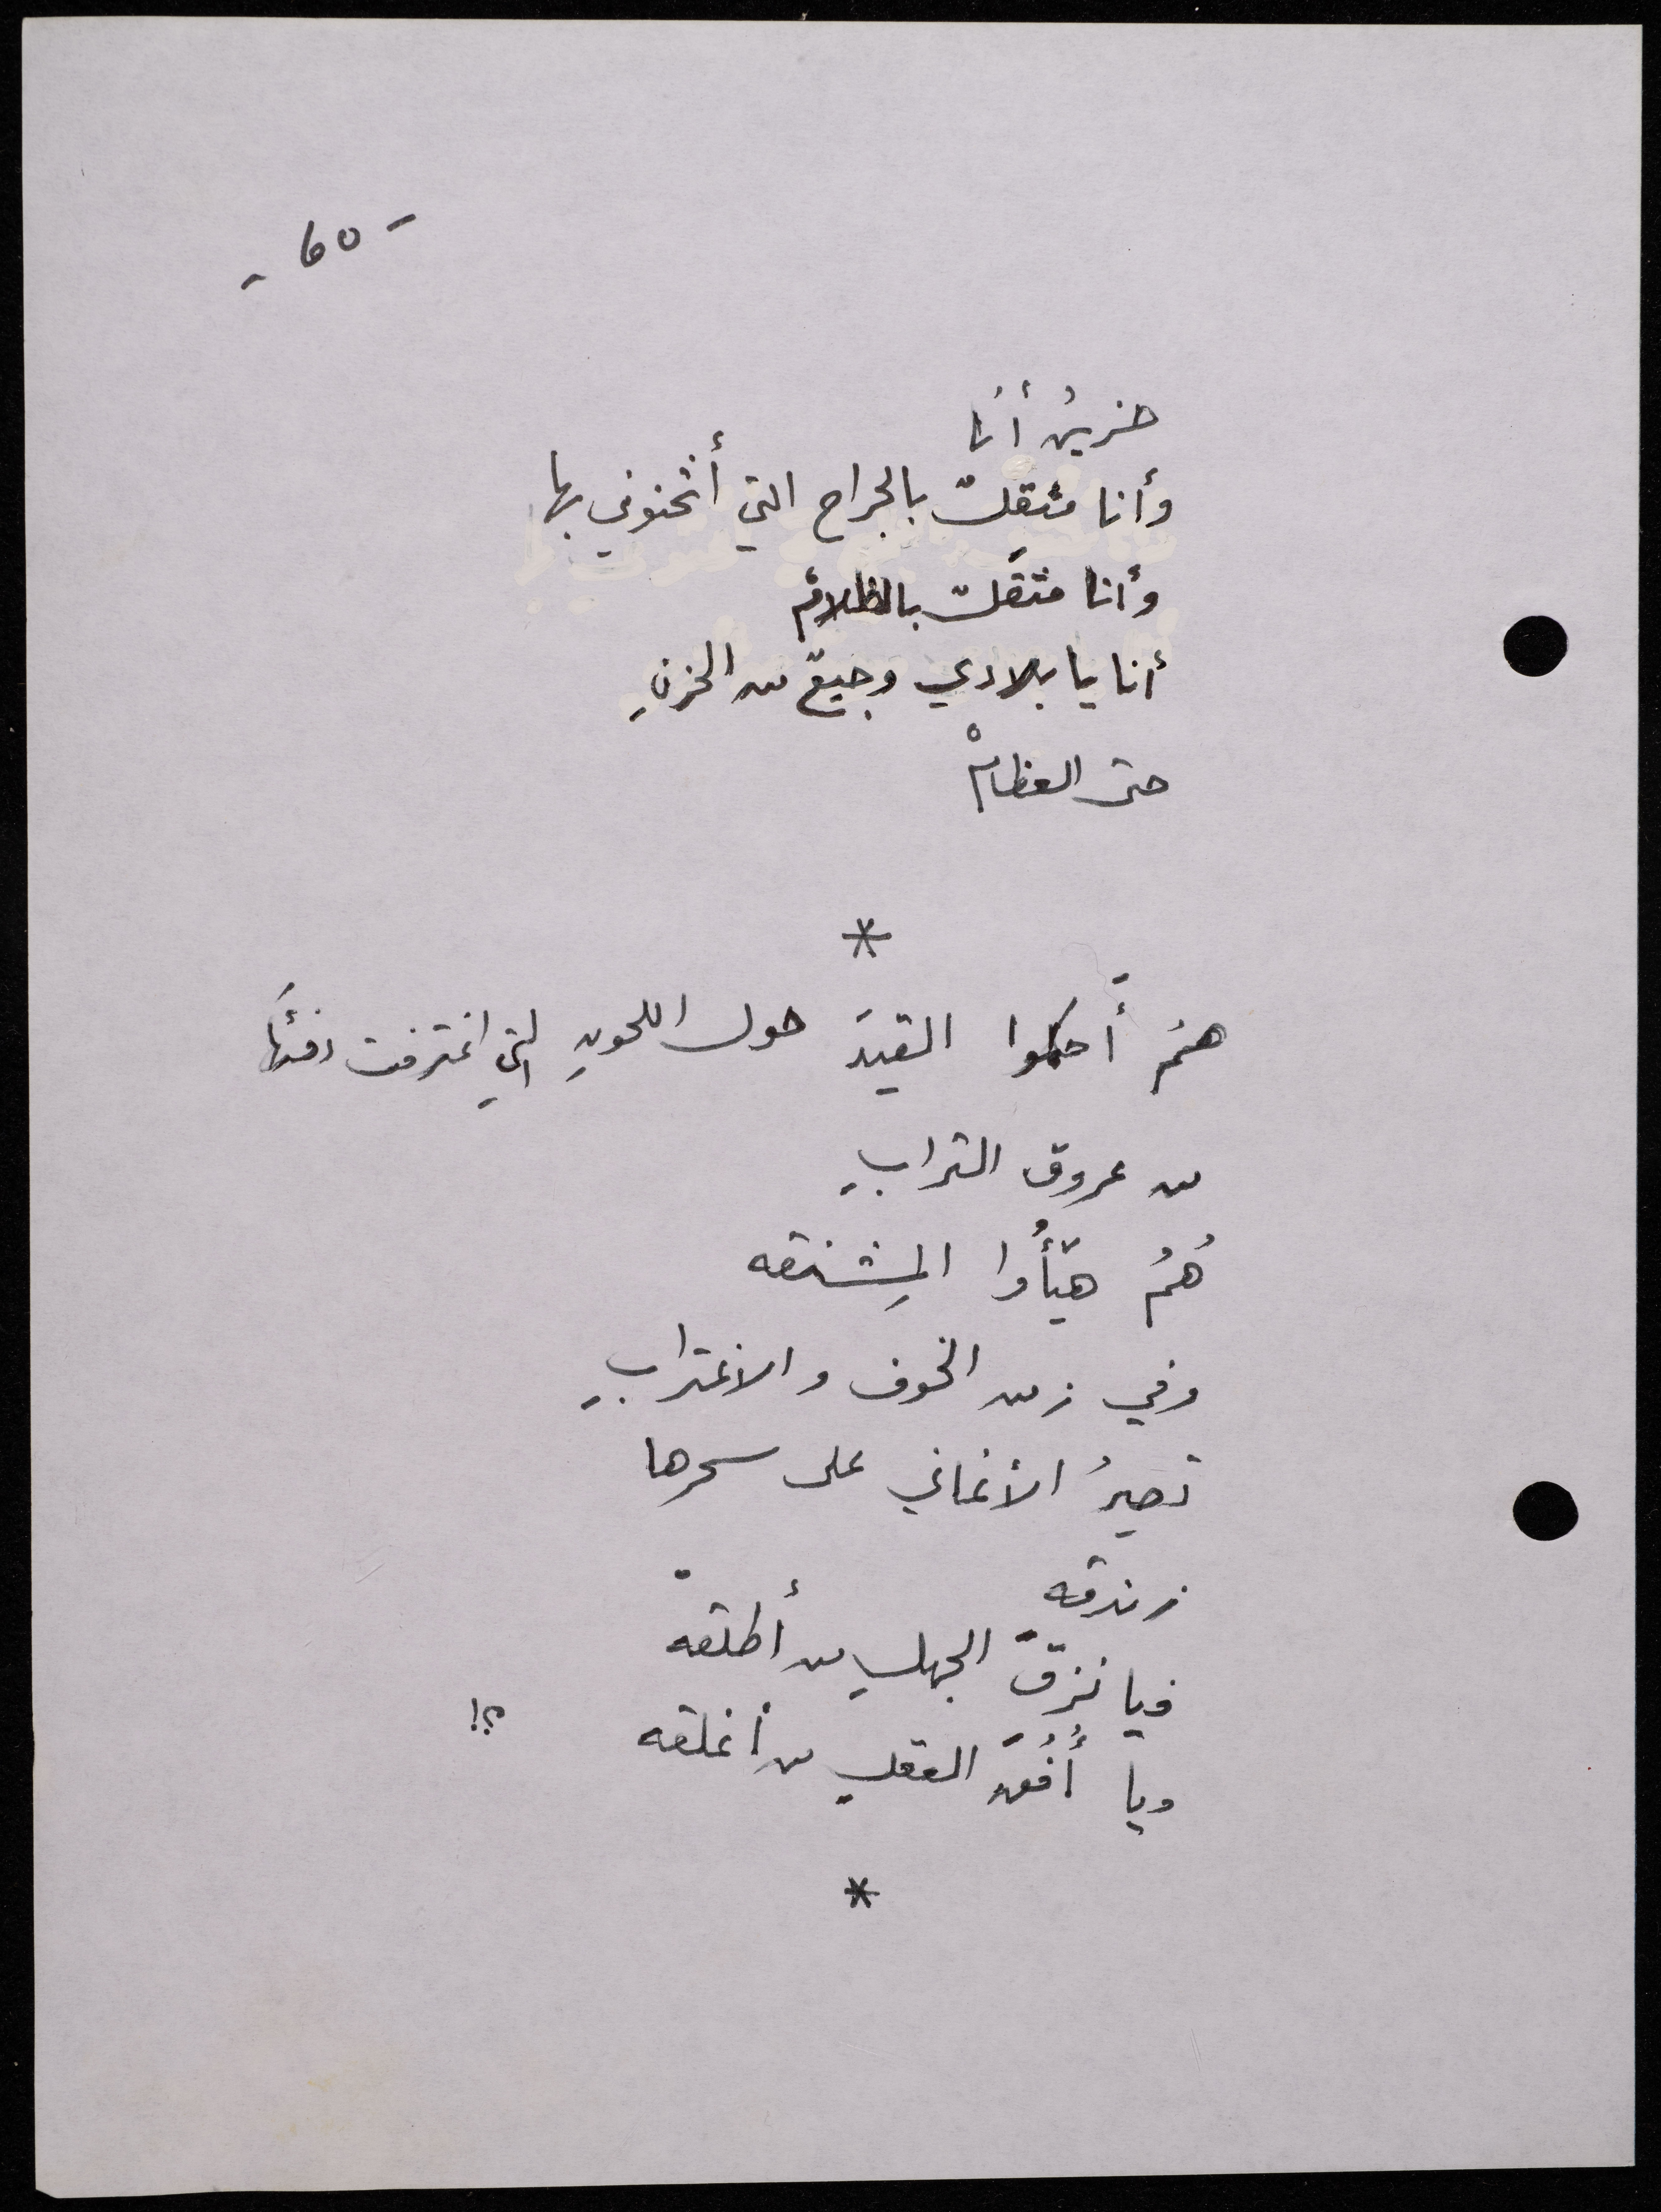 - ٦٥ -
حزينٌ أنا
وأنا مثقلٌ بالجراح التي أثخنوني بها
وأنا مثقَلٌ بالظلامْ
أنا يا بلادي وجيعٌ من الحزنِ
حتى العظامْ
*
همُ أَحكموا القيدَ حول اللحونِ التي اغترفت دفئَها
من عروق الترابِ
هُمُ هيّأُوا المِشنقه
وفي زمن الخوف والاغترابِ
تصيرُ الأغاني على سحرها
زندقه
فيا نزقَ الجهلِ من أطلقهْ
ويا أُفُقَ العقلِ من أغلقه ؟!
*